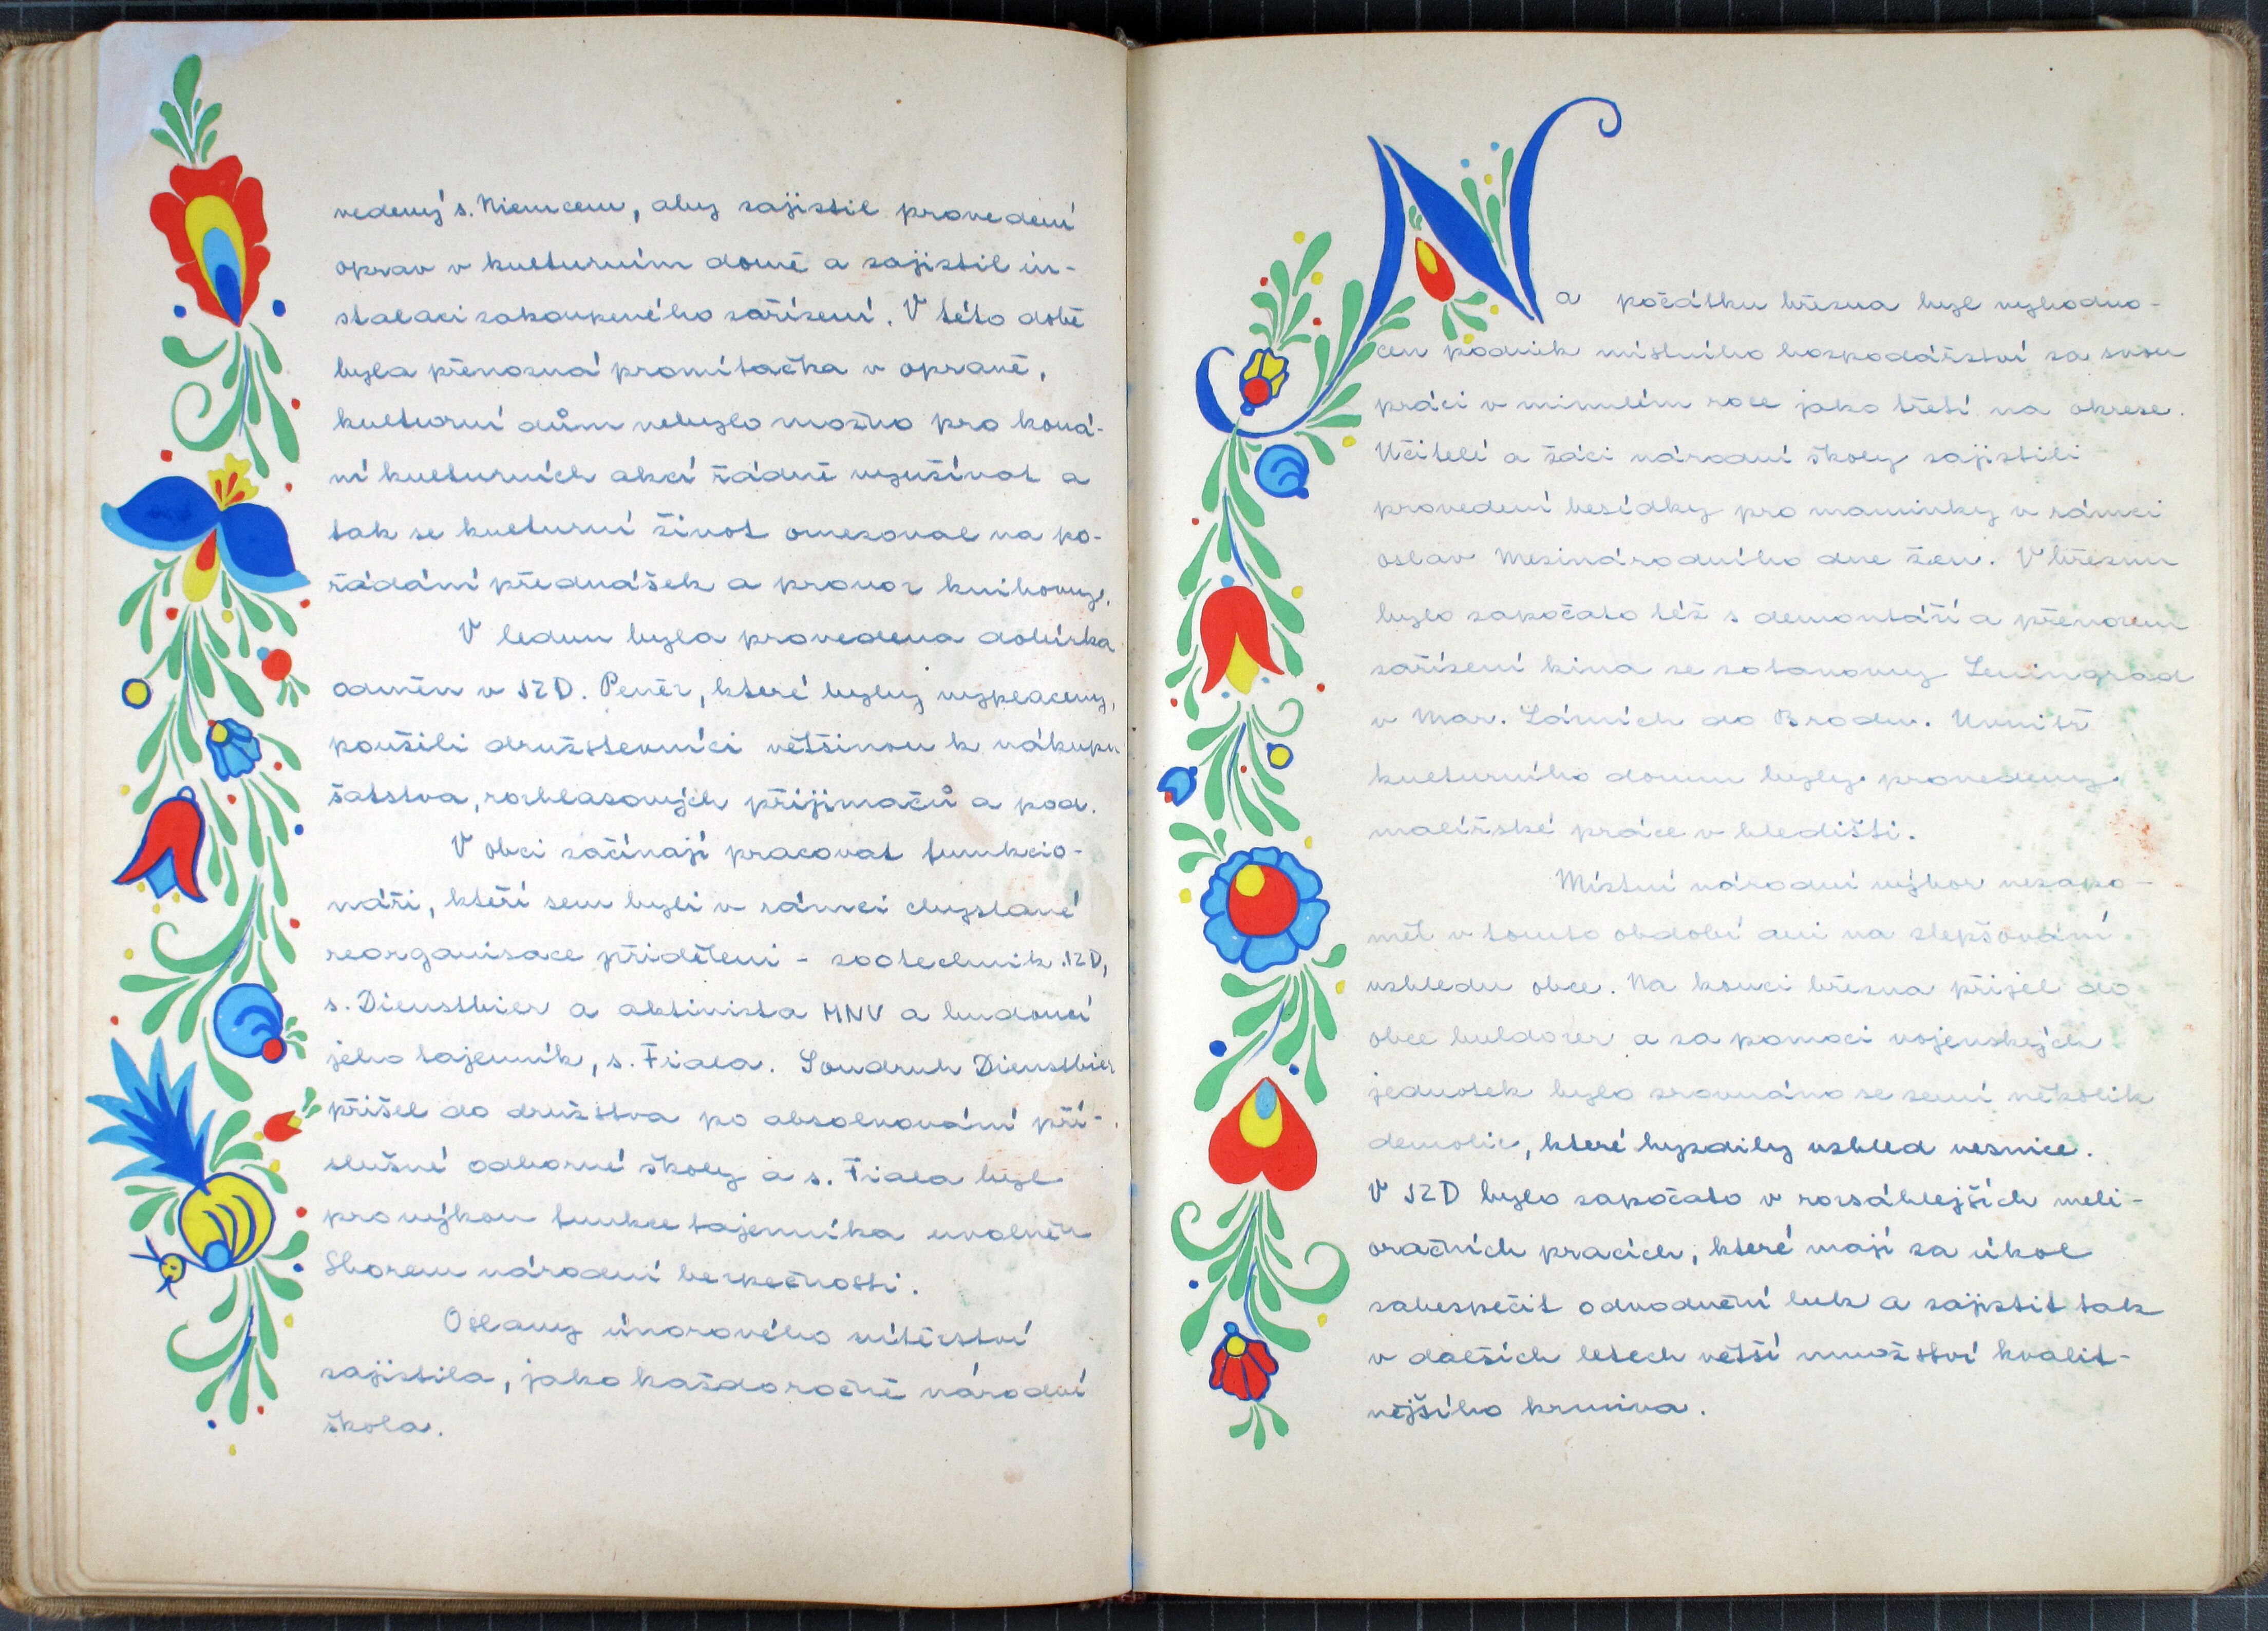 vedený s. Niemcem, aby zajistil provedení
oprav v kulturním domě a zajistil in-
stalaci zakoupeného zařízení. V této době
byla přenosná promítačka v opravě,
kulturní dům nebylo možno pro koná-
ní kulturních akcí řádně využívat a
tak se kulturní život omezoval na po-
řádání přednášek a provoz knihovny.
V lednu byla provedena dobírka
odměn v JZD. Peněz, které byly vyplaceny,
použili družstevníci většinou k nákupu
šatstva, rozhlasových přijimačů a pod.
V obci začínají pracovat funkcio-
náři, kteří sem byli v rámci chystané
reorganisace přiděleni - zootechnik JZD,
s. Dienstbier a aktivista MNV a budoucí
jeho tajemník, s. Fiala. Soudruh Dienstbier
přišel do družstva po absolvování pří-
slušné odborné školy a s. Fiala byl
pro výkon funkce tajemníka uvolněn
Sborem národní bezpečnosti.
Oslavy únorového vítězství
zajistila, jako každoročně národní
škola.
Na počátku března byl vyhodno-
cen podnik místního hospodářství za svou
práci v minulém roce jako třetí na okrese.
Učitelé a žáci národní školy zajistili
provedení besídky pro maminky v rámci
oslav Mezinárodního dne žen. V březnu
bylo započato též s demontáží a přenosem
zařízení kina ze zotavovny Leningrad
v Mar. Lázních do Brodu. Uvnitř
kulturního domu byly provedeny
malířské práce v hledišti.
Místní národní výbor nezapo-
měl v tomto období ani na zlepšování
vzhledu obce. Na konci března přijel do
obce buldozer a za pomoci vojenských
jednotek bylo srovnáno se zemí několik
demolic, které hyzdily vzhled vesnice.
V JZD bylo započato v rozsáhlejších meli-
oračních pracích, které mají za úkol
zabezpečit odvodnění luk a zajistit tak
v dalších letech větší množství kvalit-
nějšího krmiva.